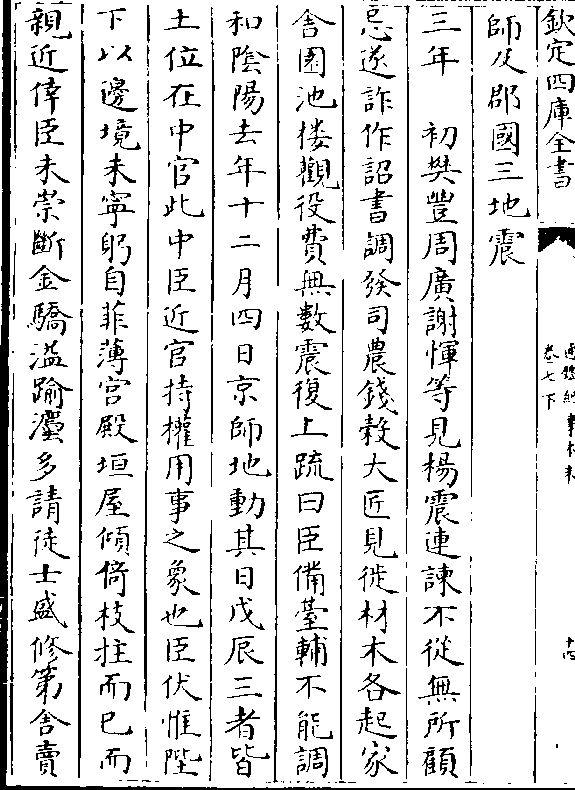 欽定四庫全書
通鑑紀事本末
卷七下
十四
師及郡國三地震
三年　初樊豐周廣謝惲等見楊震連諫不從無所顧
忌遂詐作詔書調發司農錢穀大匠見徙材木各起家
舍園池樓觀役費無數震復上疏曰臣備臺輔不能調
和陰陽去年十二月四日京師地動其日戊辰三者皆
土位在中官此中臣近官持權用事之象也臣伏惟陛
下以邊境未寧躬自菲薄宫殿垣屋傾倚枝拄而已而
親近倖臣未崇斷金驕溢踰灋多請徒士盛修第舍賣